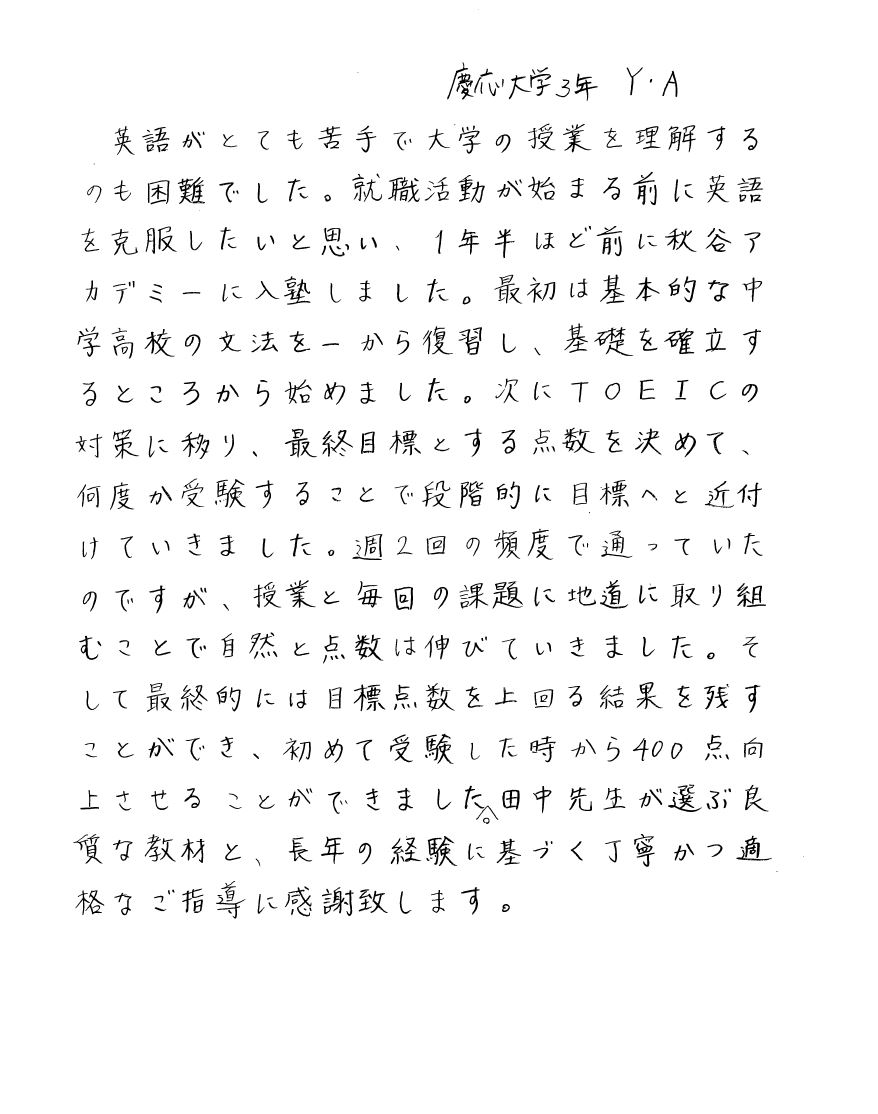 慶応大学3年 Y・A
英語がとても苦手で大学の授業を理解する
のも困難でした。就職活動が始まる前に英語
を克服したいと思い、1年半ほど前に秋谷ア
カデミーに入塾しました。最初は基本的な中
学高校の文法を一から復習し、基礎を確立す
るところから始めました。次にTOEICの
対策に移り、最終目標とする点数を決めて、
何度か受験することで段階的に目標へと近付
けていきました。週2回の頻度で通っていた
のですが、授業と毎回の課題に地道に取り組
むことで自然と点数は伸びていきました。そ
して最終的には目標点数を上回る結果を残す
ことができ、初めて受験した時から400点向
上させることができました。田中先生が選ぶ良
質な教材と、長年の経験に基づく丁寧かつ適
格なご指導に感謝致します。